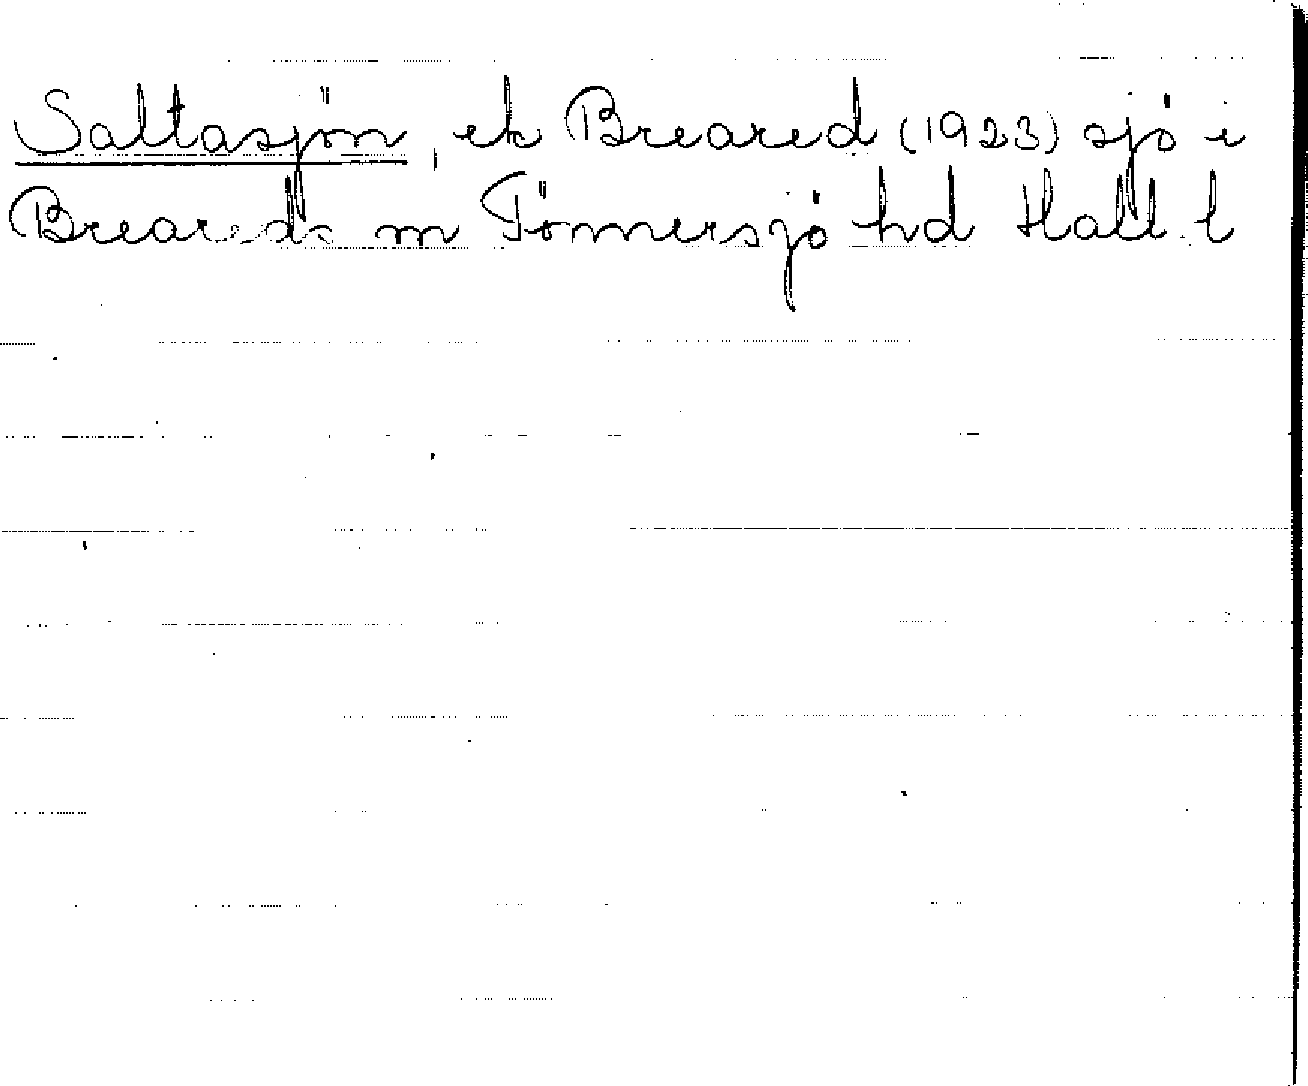 Saltasjön, ek Breared (1923) sjö i
Breareds sn Tönnersjö hd Hall. l